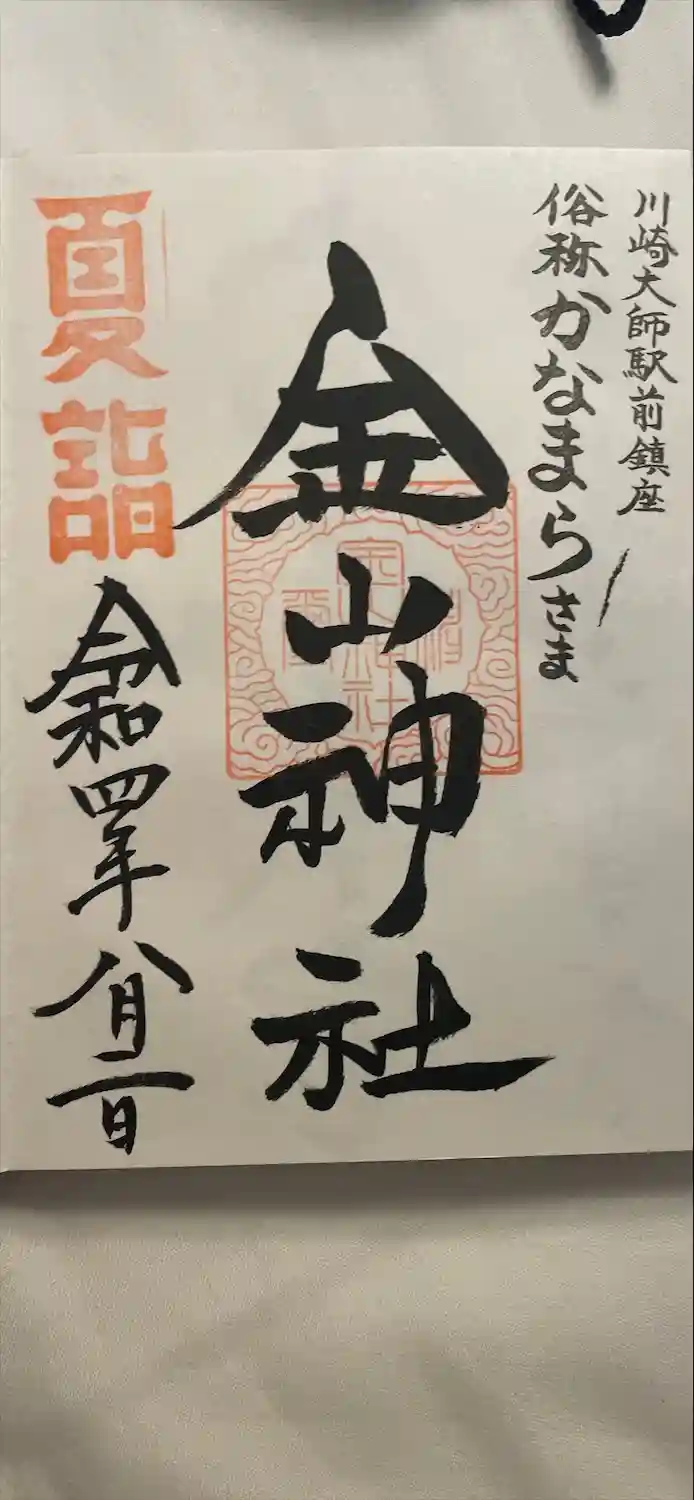 川崎大師駅前鎮座
俗称かなまらさま
金山神社
夏詣
令和四年八月二日